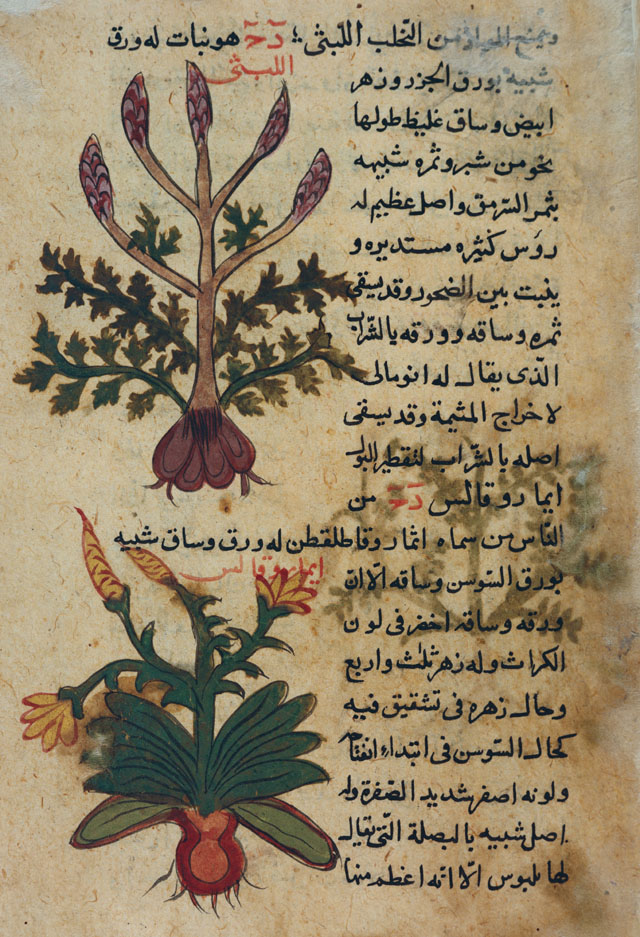 ويمنع الحبل من التخلب اللبثى ؛ دَحَ هو نبات له ورق
اللبثى
شبيه بورق الجزر وزهر
ابيض وساق غليظ طولها
نحو من شبر وثمره شبيهه
بثمر السرمق واصل عظيم له
روس كثيره مستديره و
ينبت بين الصخور وقد يسقى
ثمره وساقه وورقه بالشراب
الذى يقال له انومالى
لاخراج المشيمة وقد يسقى
اصله بالشراب لتقطير البول
ايماروقالس دَحَ من
الناس من سماه انماروقاطلقطن له ورق وساق شبيه
ايماروقالس
بورق السوسن وساقه الا ان
ورقه وساقه اخضر فى لون
الكراث وله زهر ثلث واربع
وحال زهره فى تشقيق فيه
كحال السوسن فى ابتداء انفتاح
ولونه اصفر شديد الصفرة وله
اصل شبيه بالبصلة التى يقال
لها بلبوس الا انه اعظم منها